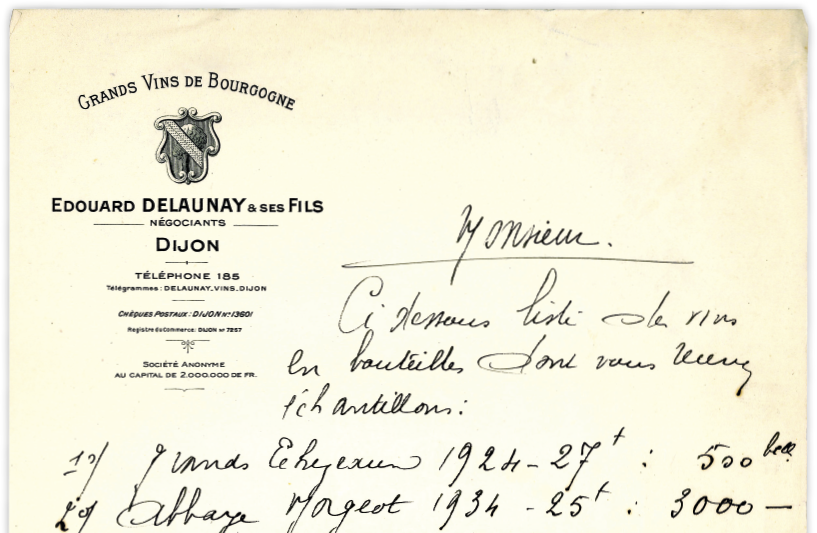 GRANDS VINS DE BOURGOGNE
EDOUARD DELAUNAY & SES FILS
NÉGOCIANTS
DIJON
TÉLÉPHONE 185
Télégrammes : DELAUNAY_VINS_DIJON
CHÈQUES POSTAUX : DIJON N° 13601
Registre du Commerce: DIJON N° 7257
SOCIÉTÉ ANONYME
AU CAPITAL DE 2.000.000 DE FR.
Monsieur.
Ci dessous liste de vins
en bouteilles dont vous
échantillons:
1°/ Grands Echezeaux 1924 - 27 t : 500 blles
2°/ Abbaye Morgeot 1934 - 25 t : 3000 —